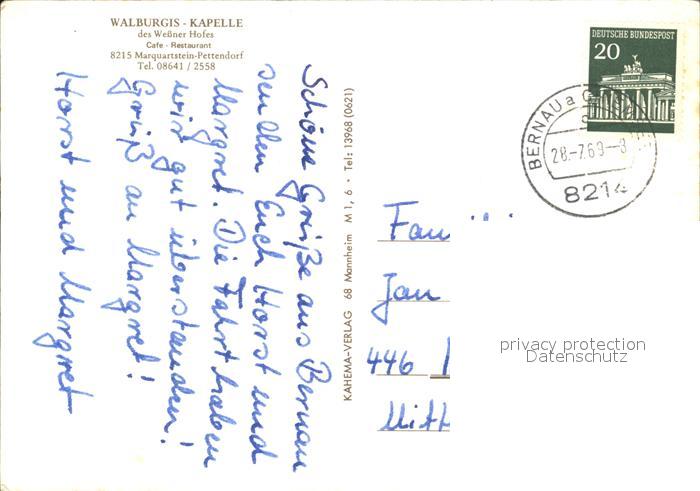 WALBURGIS - KAPELLE
des Weßner Hofes
Cafe - Restaurant
8215 Marquartstein-Pettendorf
Tel. 08641 / 2558
Schöne Grüße aus Bernau
senden Euch Horst und
Margret. Die Fahrt haben
wir gut überstanden!
Gruß an Margret!
Horst und Margret
KAHEMA-VERLAG 68 Mannheim M 1, 6 · Tel: 13968 (0621)
DEUTSCHE BUNDESPOST
20
BERNAU a
28.-7.69-8
8214
Fam
Jan
446
Mitt
privacy protection
Datenschutz